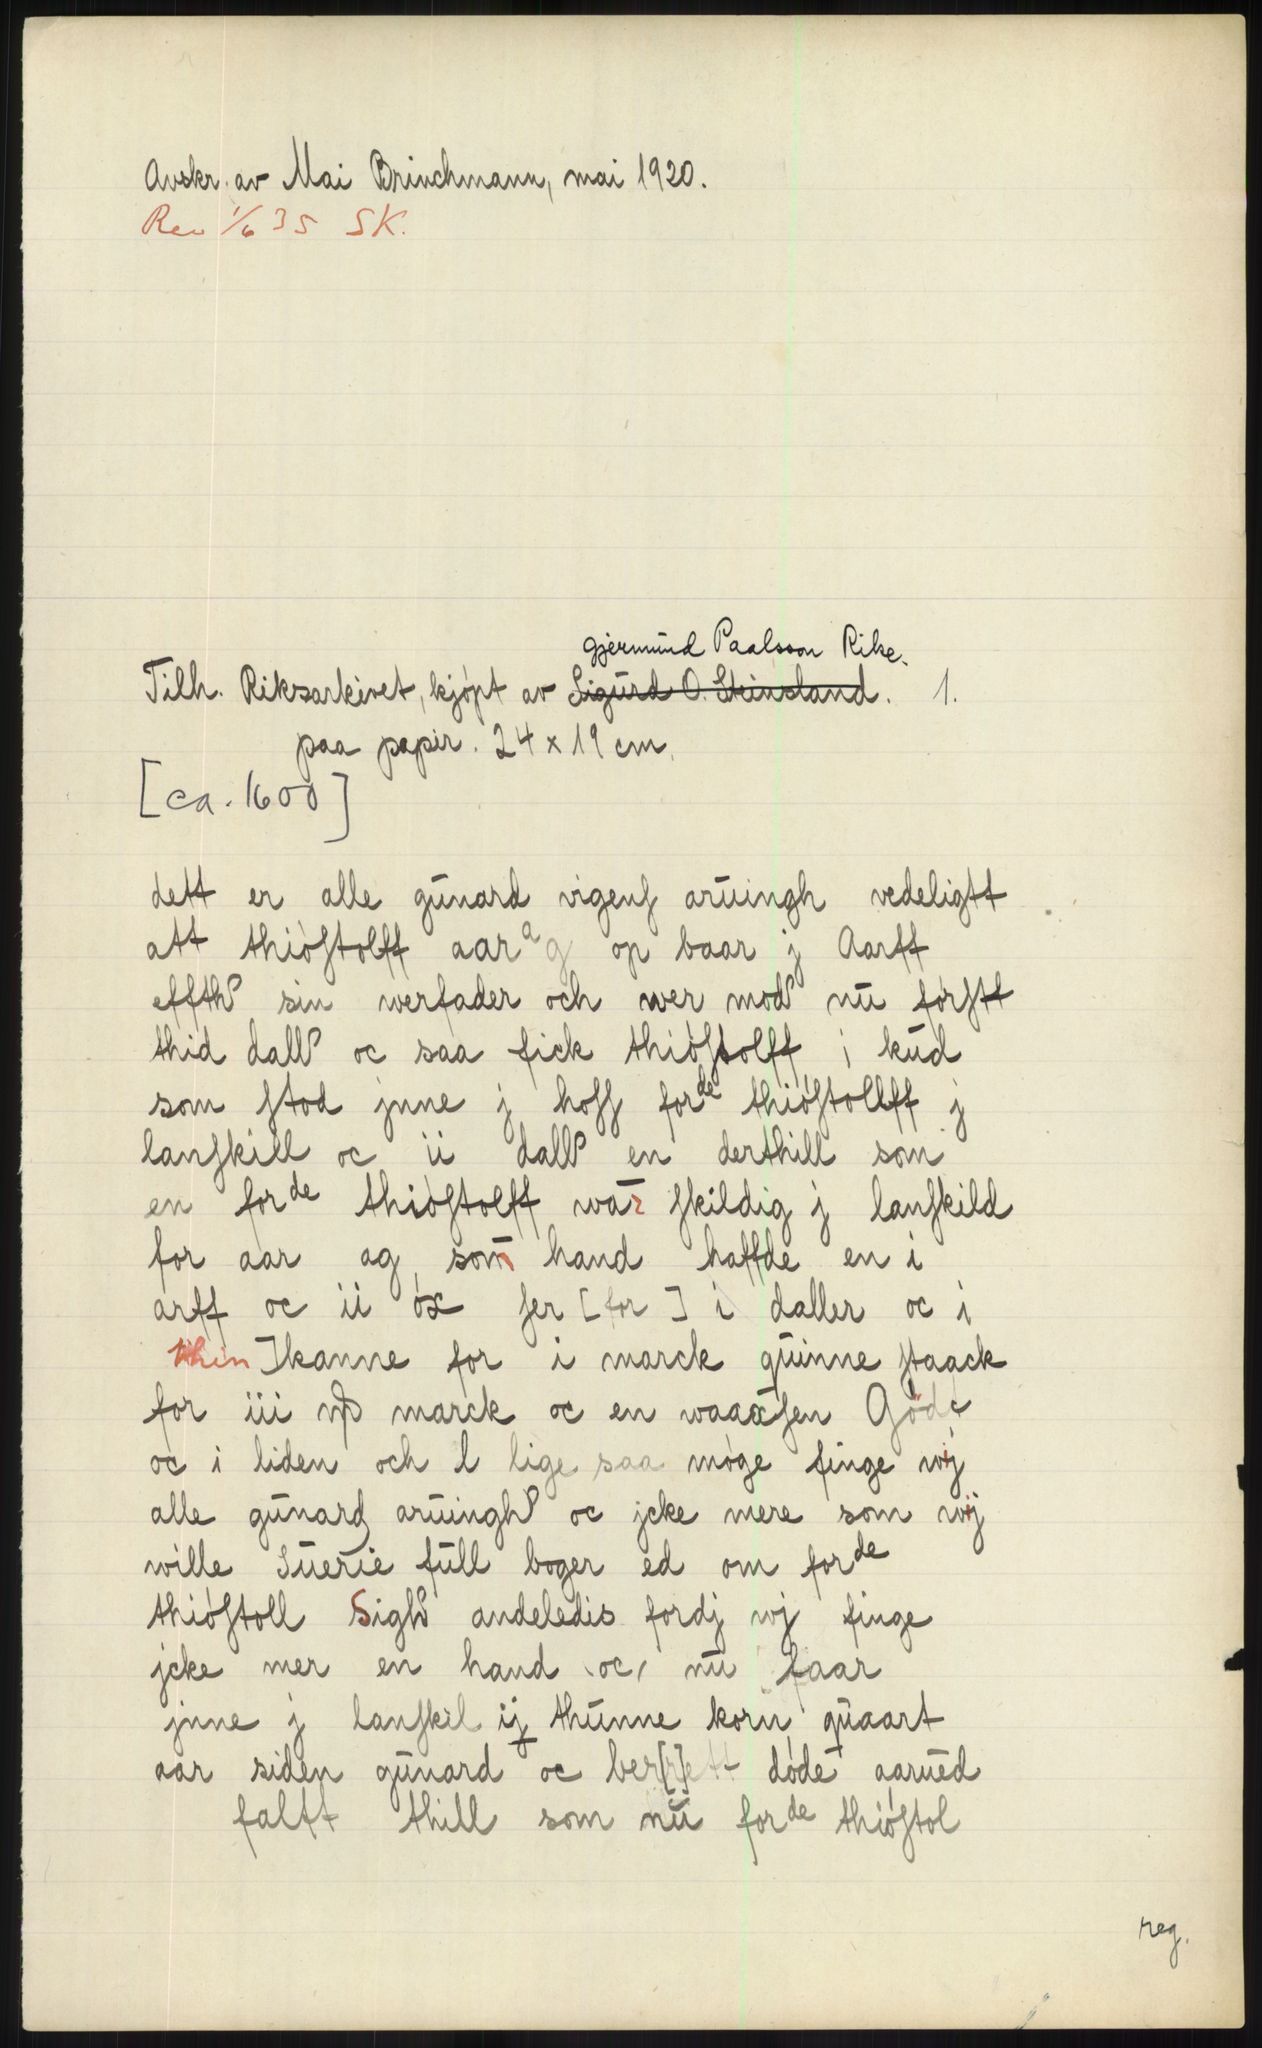 Avskr. av Mai Brinchmann, mai 1920.
Rev 1/6 35 SK.
Gjermund Paalsson Rike.
Tilh. Riksarkivet, kjøpt av Sigurd O. Steinsland. 1.
paa papir. 24 x 19 cm.
[ca. 1600]
dett er alle gunard vigens aruingh vedeligtt
att thiøstolff aar ag op baar j Aarff
effth sin werfader och wer mod nu førstt
thid dall oc saa fick thiøstolff i kud
som stod jnne j hoss forde thiøstollff j
lanskill oc ii dall en derthill som
en forde thiøstolff war skildig j lanskild
for aar ag som hand haffde en i
arff oc ii øx ser [for] i daller oc i
thin]kanne for i marck quinne staack
for iii marck oc en waaxsen Gøde
oc i liden och l lige saa møge finge wij
alle gunard aruingh oc jcke mere som wij
wille suerie full boger ed om forde
thiøstoll Sigh andeledis fordj wj finge
jcke mer en hand oc nu faar
jnne j lanskil ij thunne korn quaart
aar siden gunard oc ber[r]ett døde aarued
faltt thill som nu forde thiøstol
reg.